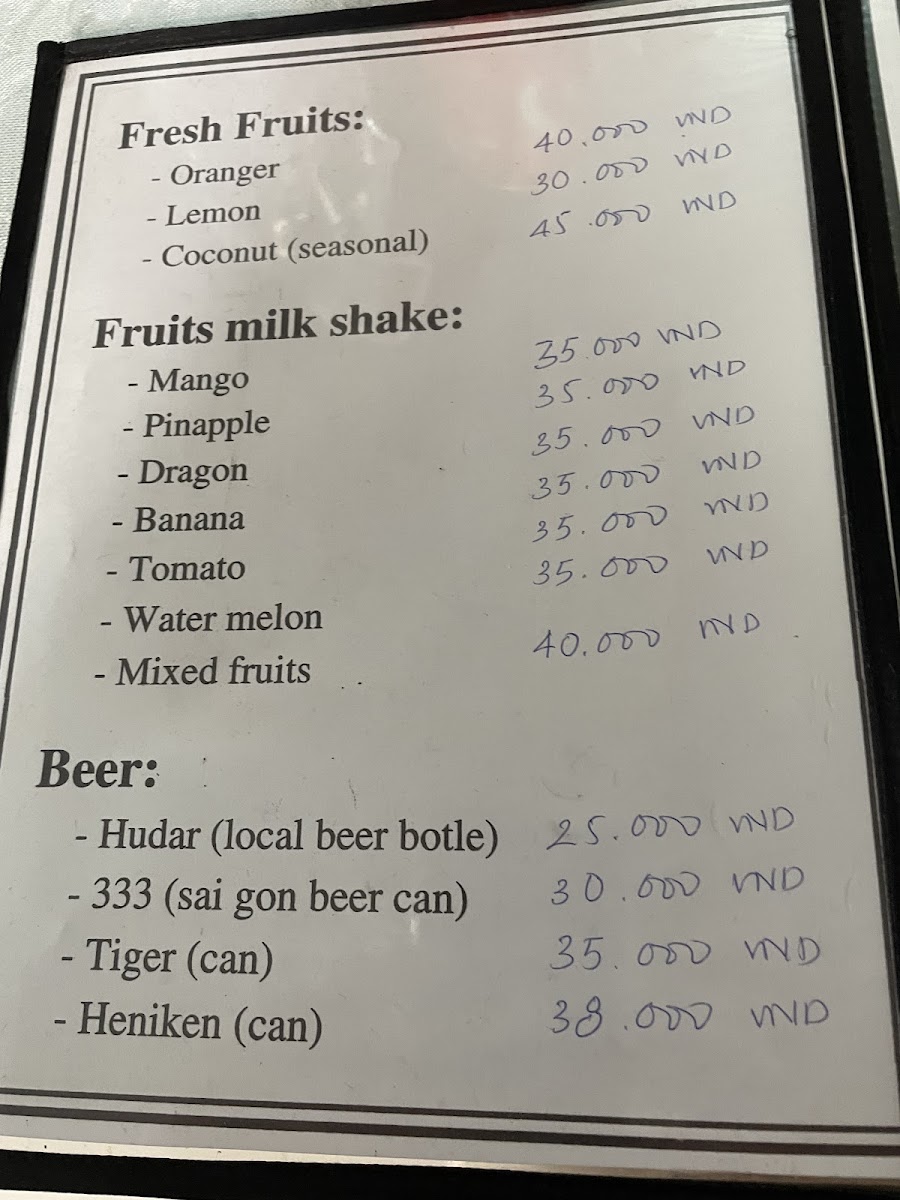 Fresh Fruits:
- Oranger 40.000 VND
- Lemon 30.000 VND
- Coconut (seasonal) 45.000 VND
Fruits milk shake:
- Mango 35.000 VND
- Pinapple 35.000 VND
- Dragon 35.000 VND
- Banana 35.000 VND
- Tomato 35.000 VND
- Water melon 35.000 VND
- Mixed fruits 40.000 VND
Beer:
- Hudar (local beer botle) 25.000 VND
- 333 (sai gon beer can) 30.000 VND
- Tiger (can) 35.000 VND
- Heniken (can) 38.000 VND